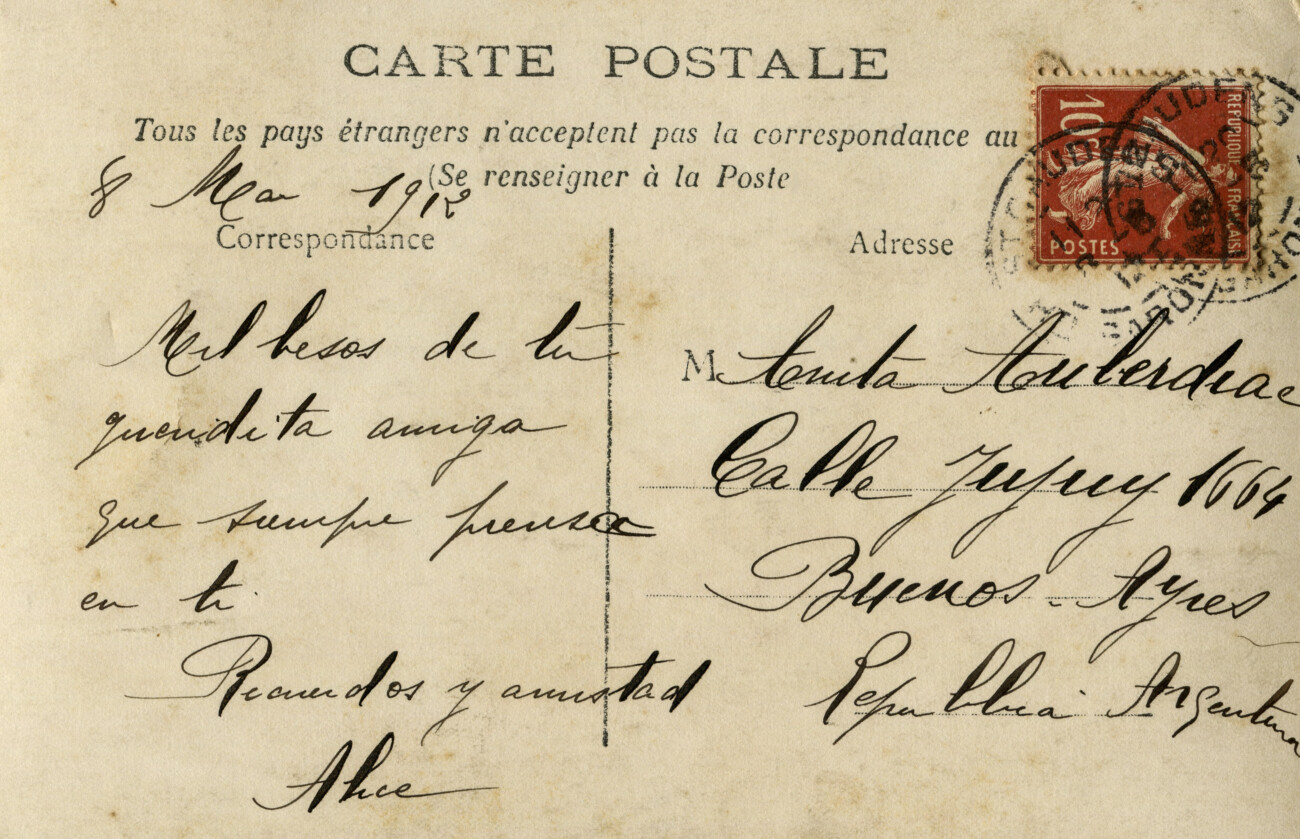 CARTE POSTALE
Tous les pays étrangers n'acceptent pas la correspondance au
(Se renseigner à la Poste
8 Mai 1912
Correspondance
Mil besos de tu
queridita amiga
que siempre piensa
en ti
Recuerdos y amistad
Alice
Adresse
M Anita
Calle Jujuy 1664
Buenos-Ayres
Republica Argentina
10c
POSTES
REPUBLIQUE FRANÇAISE